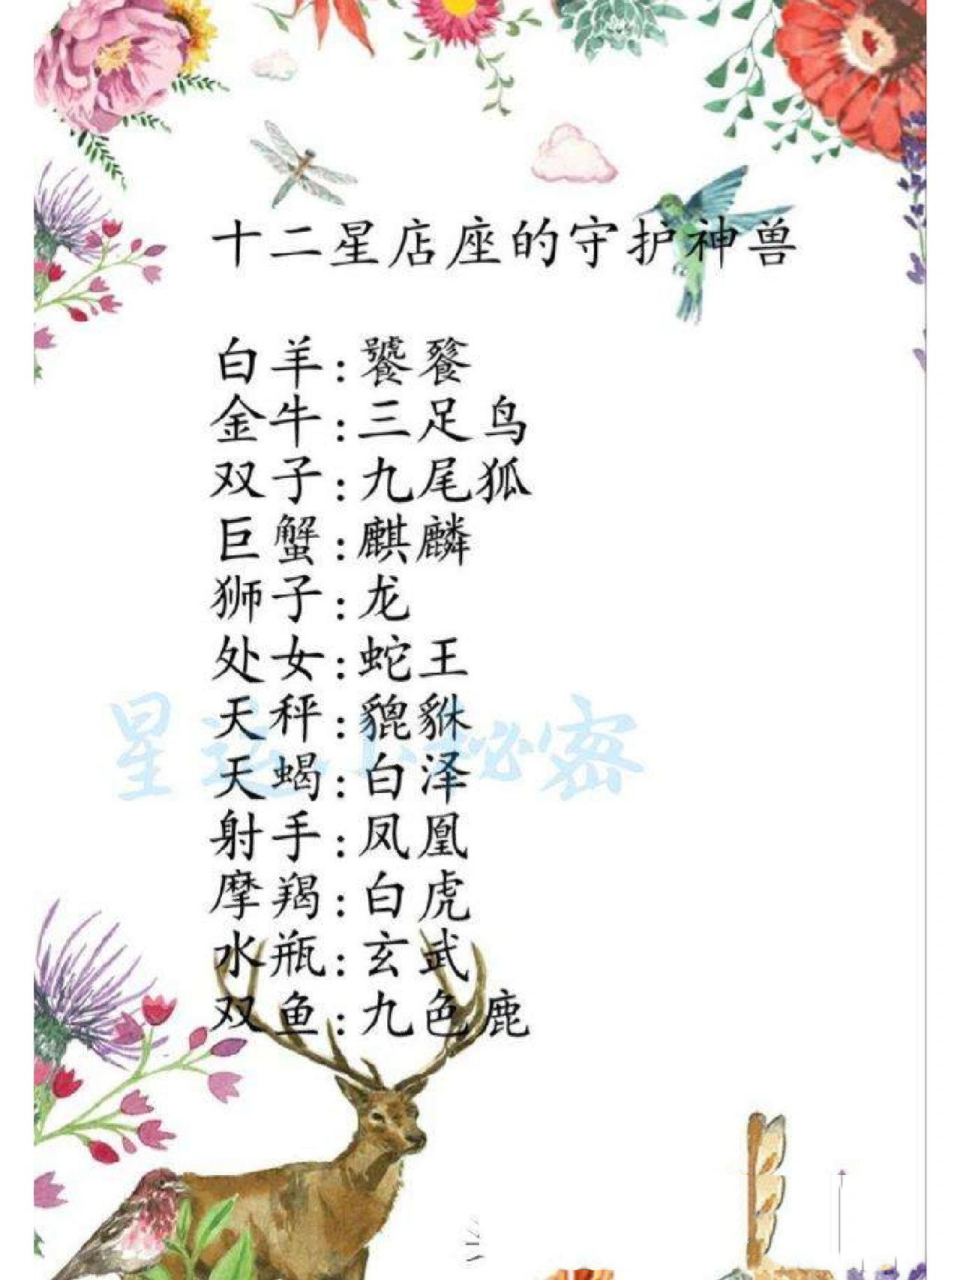 十二星店座的守护神兽
白羊:饕餮
金牛:三足鸟
双子:九尾狐
巨蟹:麒麟
狮子:龙
处女:蛇王
天秤:貔貅
天蝎:白泽
射手:凤凰
摩羯:白虎
水瓶:玄武
双鱼:九色鹿